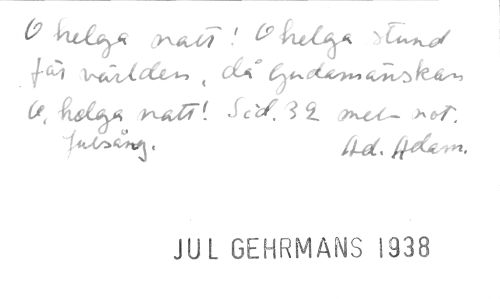 O helga natt! O helga stund
för världen, då Gudamänskan
O, helga natt! Sid. 32 mel. not.
Julsång. Ad. Adam.
JUL GEHRMANS 1938